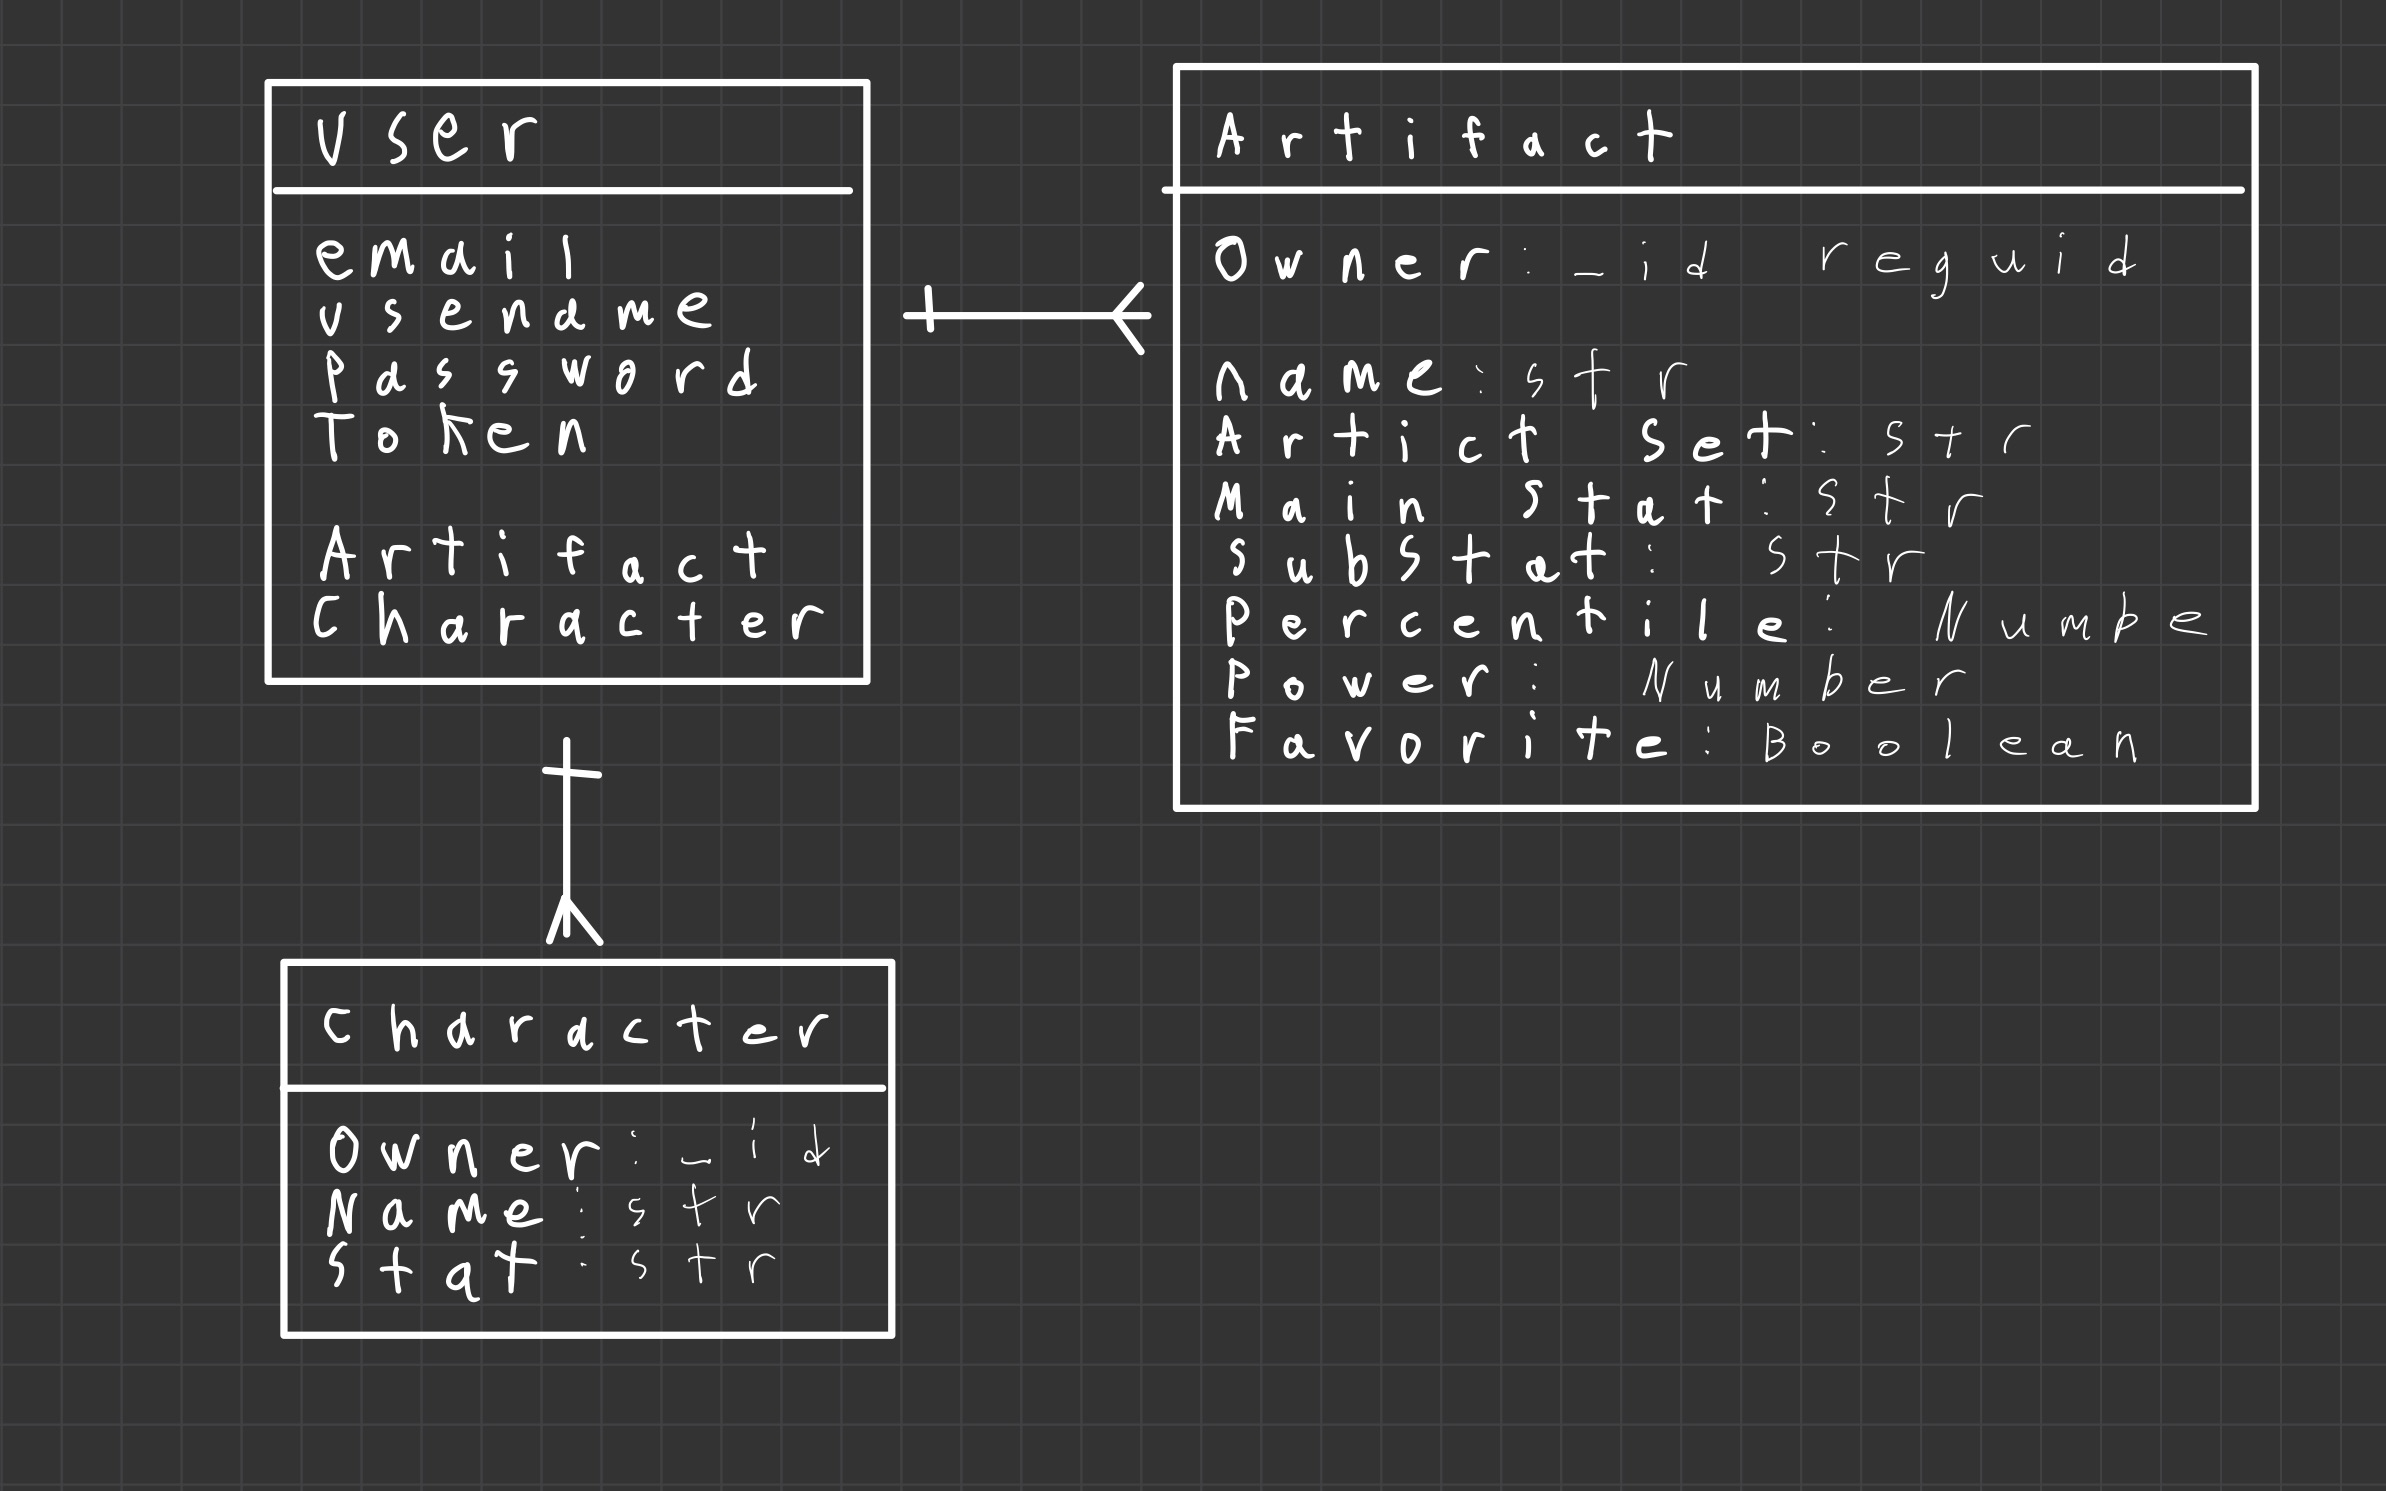 User
email
usename
Password
Token
Artifact
Character
Artifact
Owner: _id reguid
name: str
Artict Set: str
Main Stat: str
Substat: str
Percentile: Numbe
Power: Number
Favorite: Boolean
Character
Owner: _id
Name: str
Stat: str